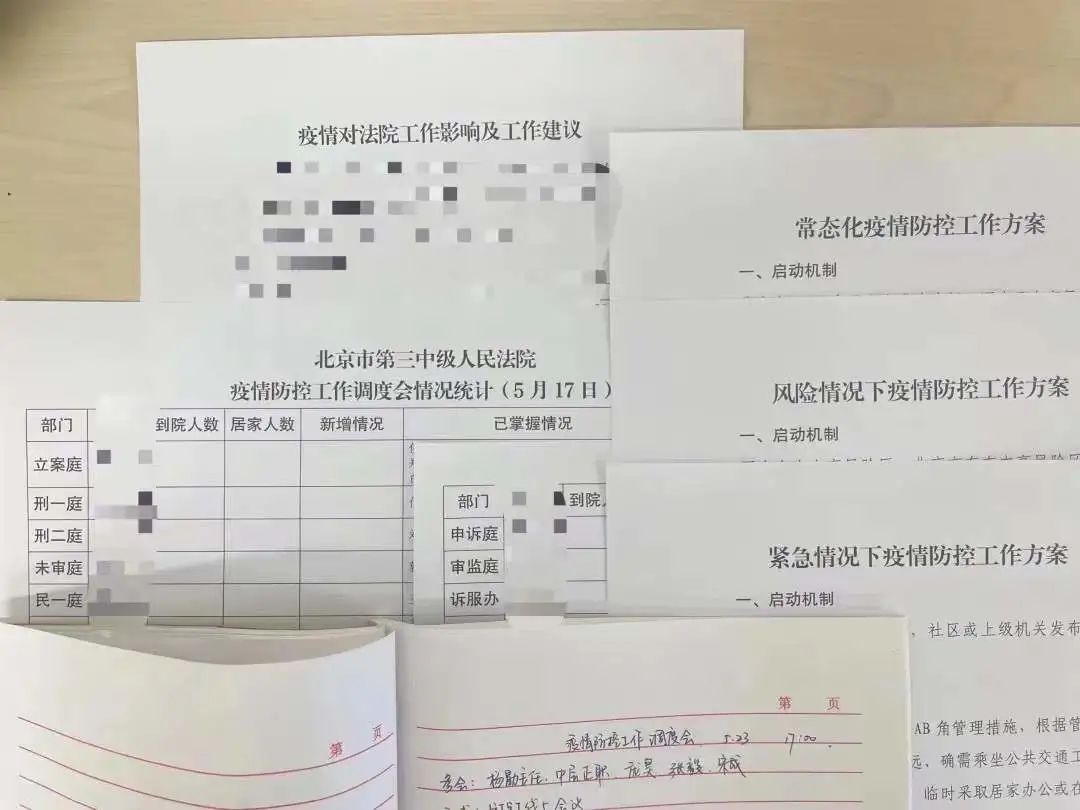 疫情对法院工作影响及工作建议
常态化疫情防控工作方案
一、启动机制
北京市第三中级人民法院
疫情防控工作调度会情况统计（5月17日）
部门 到院人数 居家人数 新增情况 已掌握情况
立案庭
刑一庭
刑二庭
未审庭
民一庭
部门 到院人
申诉庭
审监庭
诉服办
风险情况下疫情防控工作方案
一、启动机制
紧急情况下疫情防控工作方案
一、启动机制
，社区或上级机关发布
AB角管理措施，根据管
远，确需乘坐公共交通工
临时采取居家办公或在
第 页
第 页
疫情防控工作调度会 5.23 17:00.
参会：杨勋主任、中层正职、庞昊、张毅、宋
线上会议